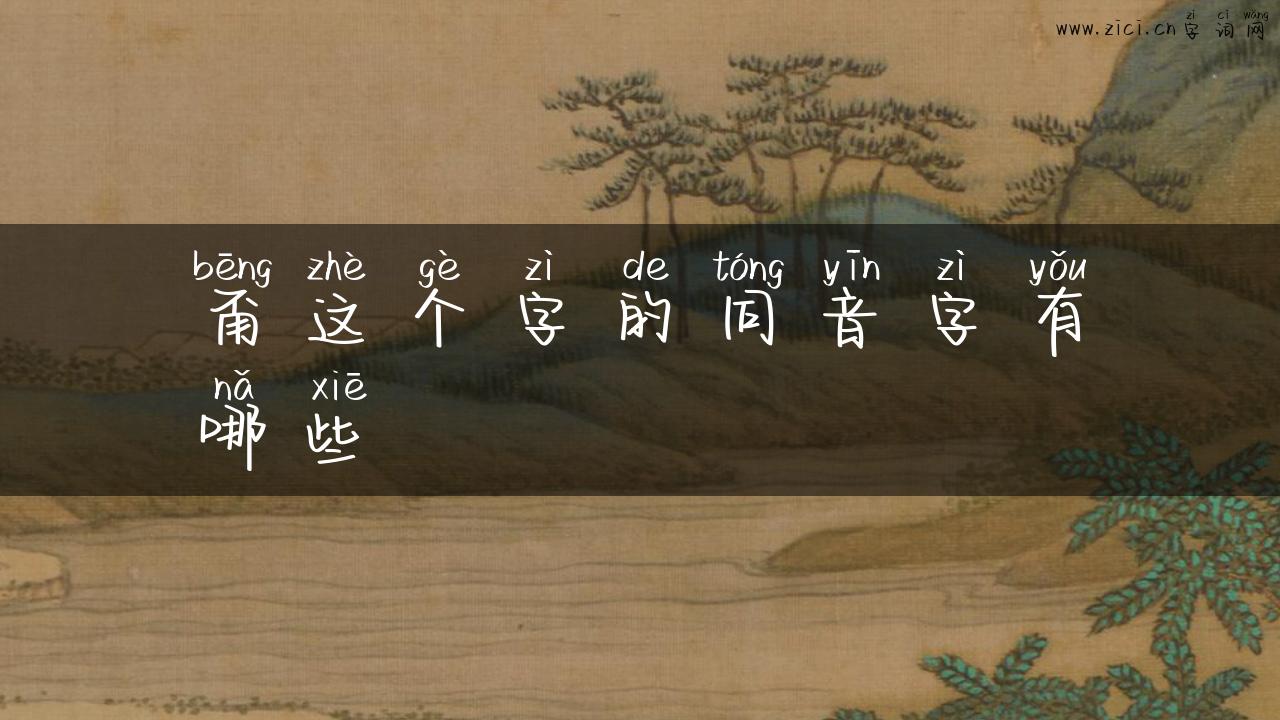 zì cí wǎng
www.zici.cn 字词网
bēng zhè gè zì de tóng yīn zì yǒu
甭这个字的同音字有
nǎ xiē
哪些